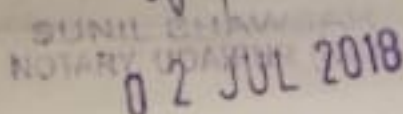 SUNIL
NOTARY
0 2 JUL 2018